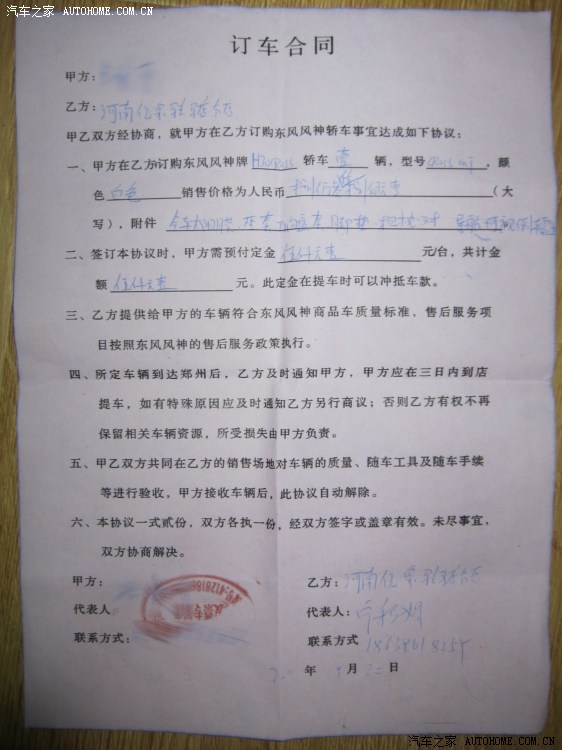 汽车之家 AUTOHOME.COM.CN
订车合同
甲方：
乙方：河南亿
甲乙双方经协商，就甲方在乙方订购东风风神轿车事宜达成如下协议：
一、甲方在乙方订购东风风神牌 轿车 壹 辆，型号 ，颜
色 白色 销售价格为人民币 （大
写），附件
二、签订本协议时，甲方需预付定金 伍仟元整 元/台，共计金
额 伍仟元整 元。此定金在提车时可以冲抵车款。
三、乙方提供给甲方的车辆符合东风风神商品车质量标准，售后服务项
目按照东风风神的售后服务政策执行。
四、所定车辆到达郑州后，乙方及时通知甲方，甲方应在三日内到店
提车，如有特殊原因应及时通知乙方另行商议；否则乙方有权不再
保留相关车辆资源，所受损失由甲方负责。
五、甲乙双方共同在乙方的销售场地对车辆的质量、随车工具及随车手续
等进行验收，甲方接收车辆后，此协议自动解除。
六、本协议一式贰份，双方各执一份，经双方签字或盖章有效。未尽事宜，
双方协商解决。
甲方： 乙方：河南亿
代表人 代表人：
联系方式： 联系方式
年 月 日
汽车之家 AUTOHOME.COM.CN